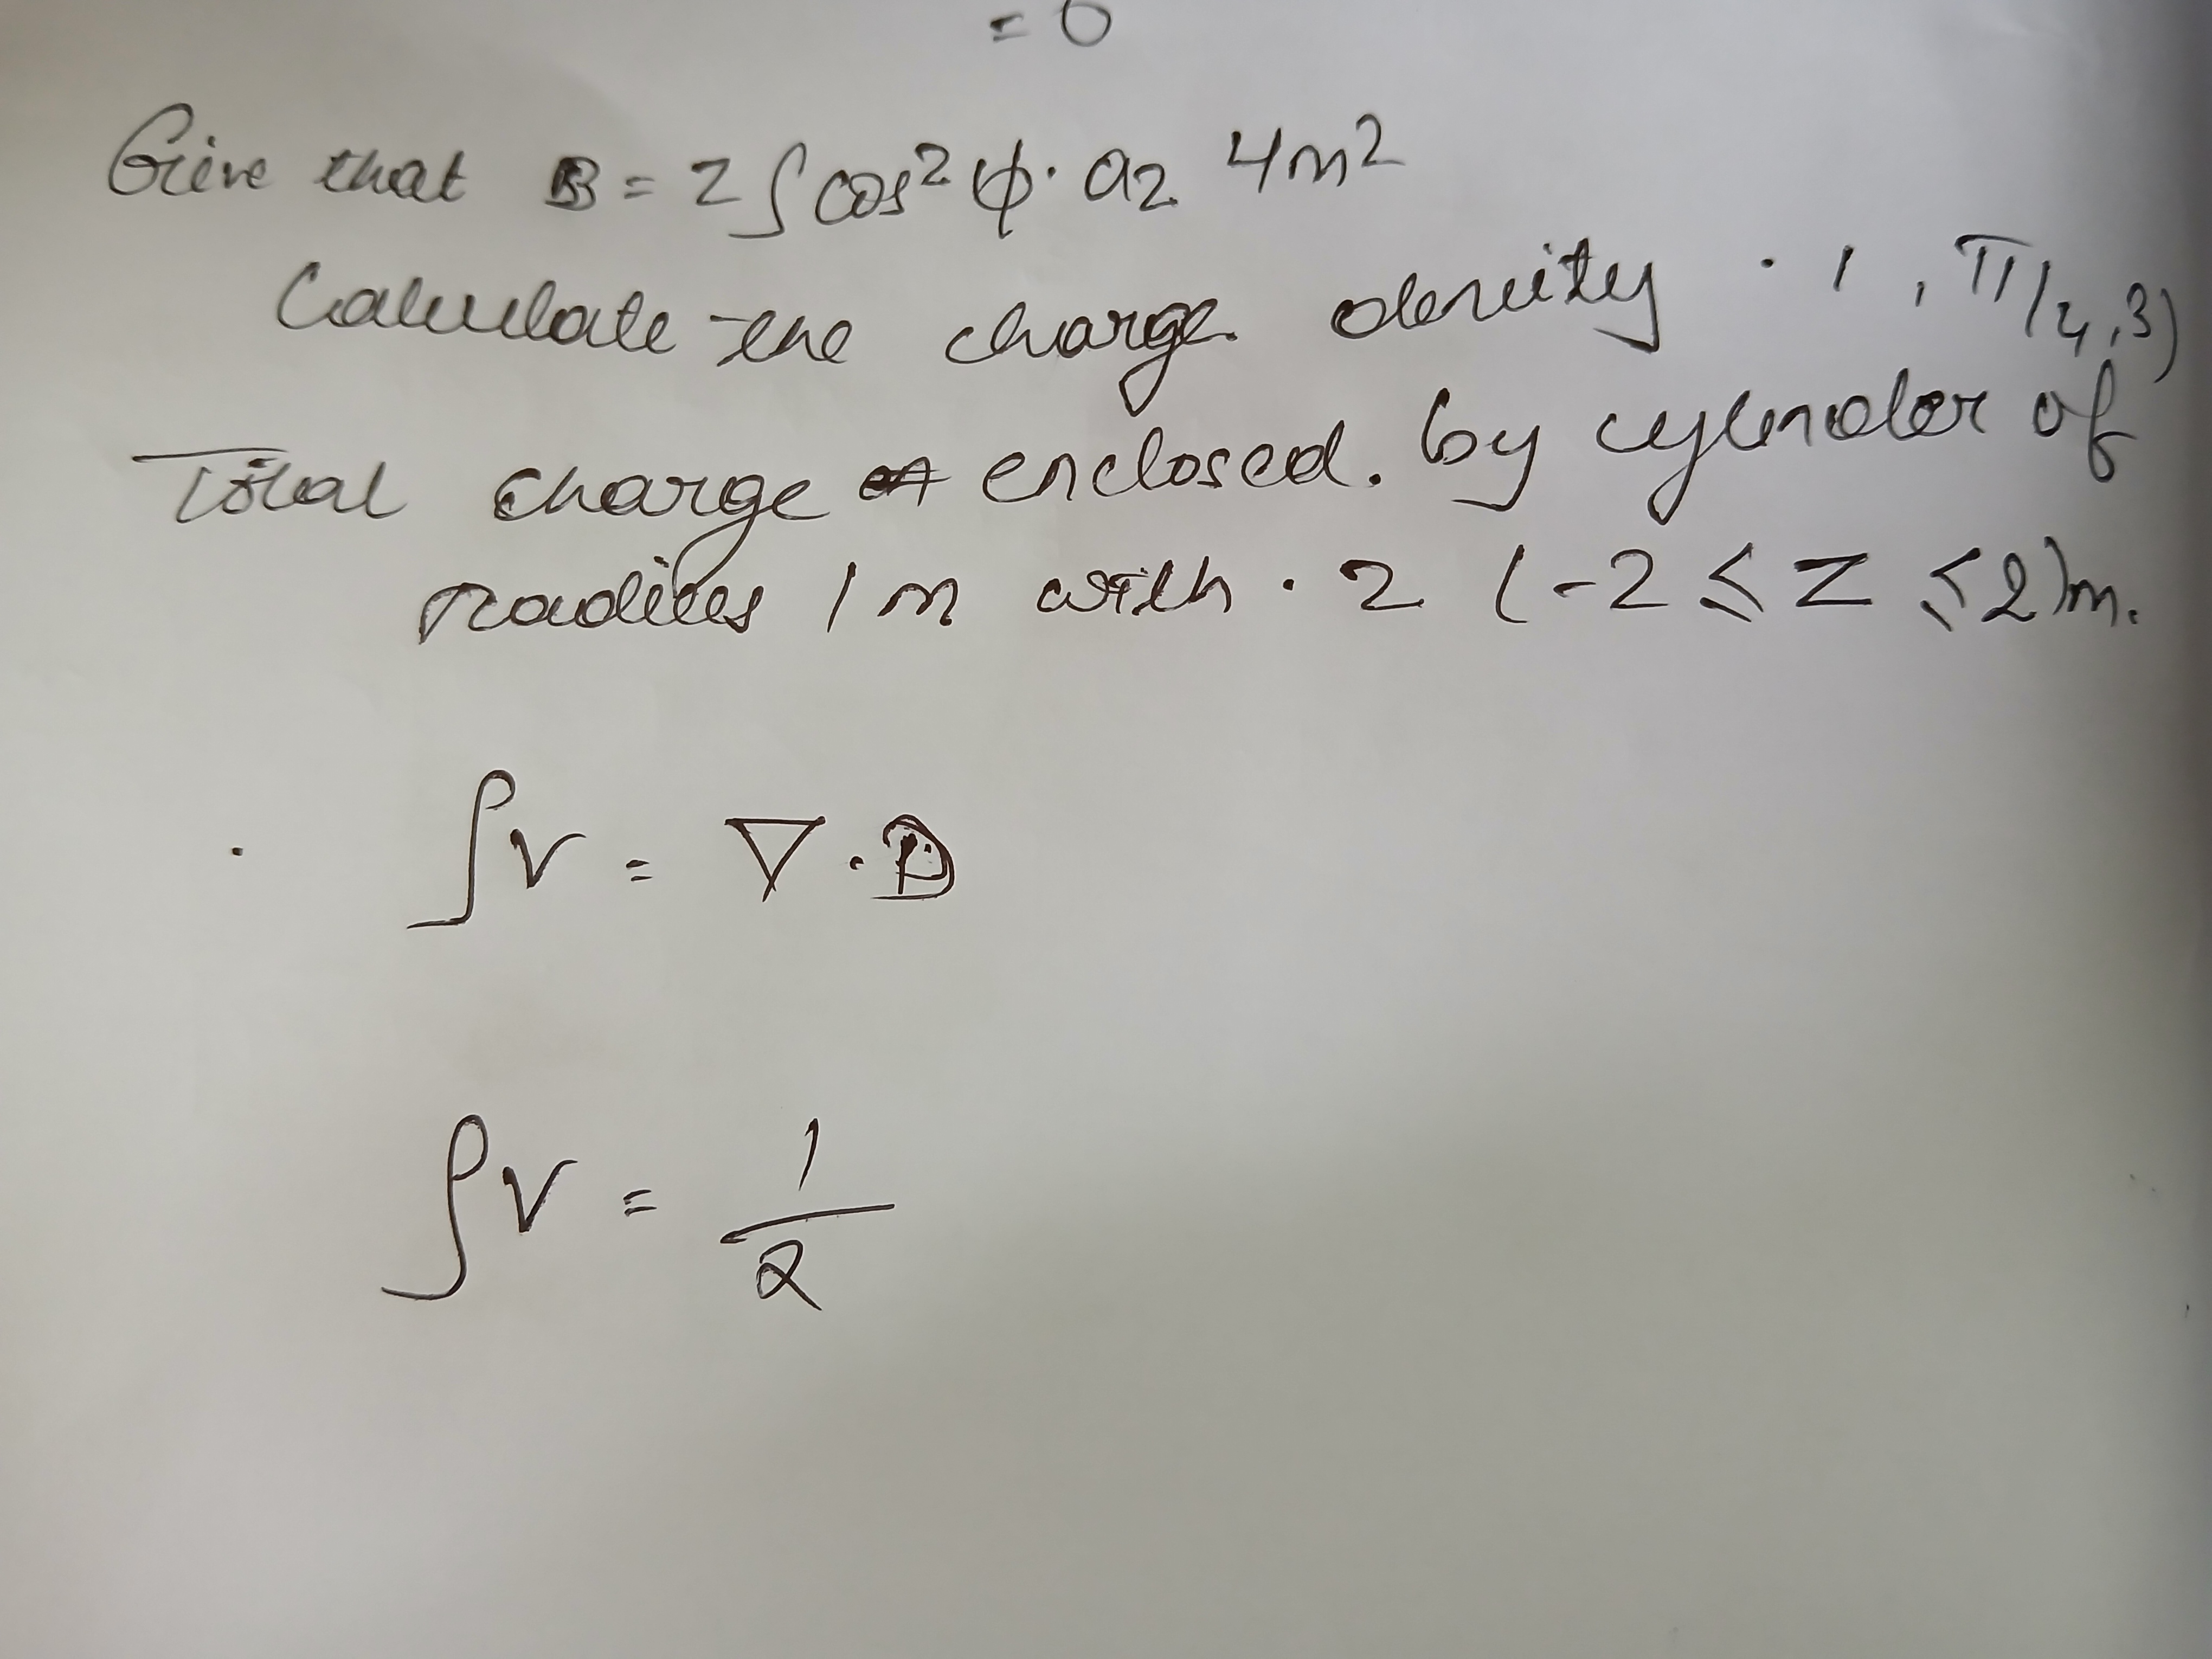 = 0
Given that B = zρcos²φ · az 4m²
Calculate the charge density · 1, π/4, 3)
Total charge enclosed. by cylender of
radius 1m with · z (-2 ≤ z ≤ 2)m.
ρv = ∇ · D
ρv = 1/ρ